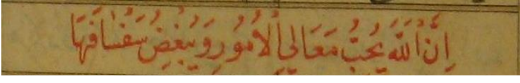 اِنَّ اللّٰهَ يُحِبُّ مَعَالِيَ الْاُمُورِ وَيُبْغِضُ سَفْسَافَهَا